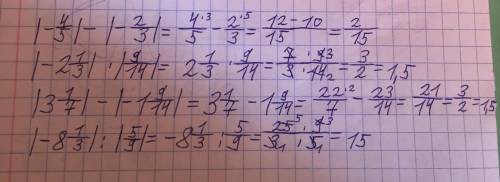 |-4/5| - |-2/3| = 4·3/5 - 2·5/3 = 12-10/15 = 2/15
|-2 1/3| · |9/14| = 2 1/3 · 9/14 = 7·93/3·142 = 3/2 = 1,5
|3 1/7| - |-1 9/14| = 3 1/7 - 1 9/14 = 22·2/7 - 23/14 = 21/14 = 3/2 = 1,5
|-8 1/3| : |5/9| = -8 1/3 : 5/9 = 255·93/31·51 = 15